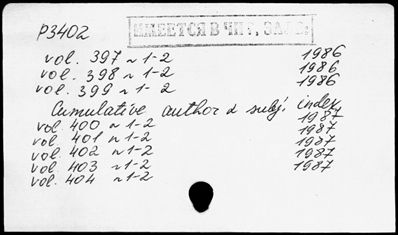 P3402
ИМЕЕТСЯ В ЧИТ. ЗАЛЕ
vol. 397 N 1-2 1986
vol. 398 N 1-2 1986
vol. 399 N 1-2 1986
Cumulative author & subj. index
vol 400 N 1-2 1987
vol. 401 N 1-2 1987
vol. 402 N 1-2 1987
vol. 403 N 1-2 1987
vol. 404 N 1-2 1987